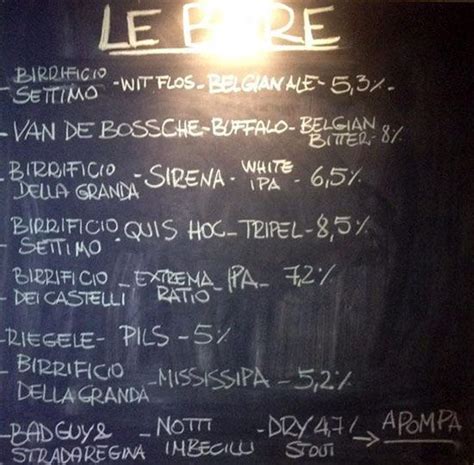 LE BIRRE
- BIRRIFICIO SETTIMO - WIT FLOS - BELGIAN ALE - 5,3% -
- VAN DE BOSSCHE - BUFFALO - BELGIAN BITTER - 8%
- BIRRIFICIO DELLA GRANDA - SIRENA - WHITE IPA - 6,5%
- BIRRIFICIO SETTIMO - QUIS HOC - TRIPEL - 8,5%
- BIRRIFICIO DEI CASTELLI - EXTREMA RATIO - IPA - 7,2%
- RIEGELE - PILS - 5%
- BIRRIFICIO DELLA GRANDA - MISSISSIPA - 5,2%
- BAD GUY & STRADAREGINA - NOTTI IMBECILLI - DRY STOUT 4,7% → A POMPA